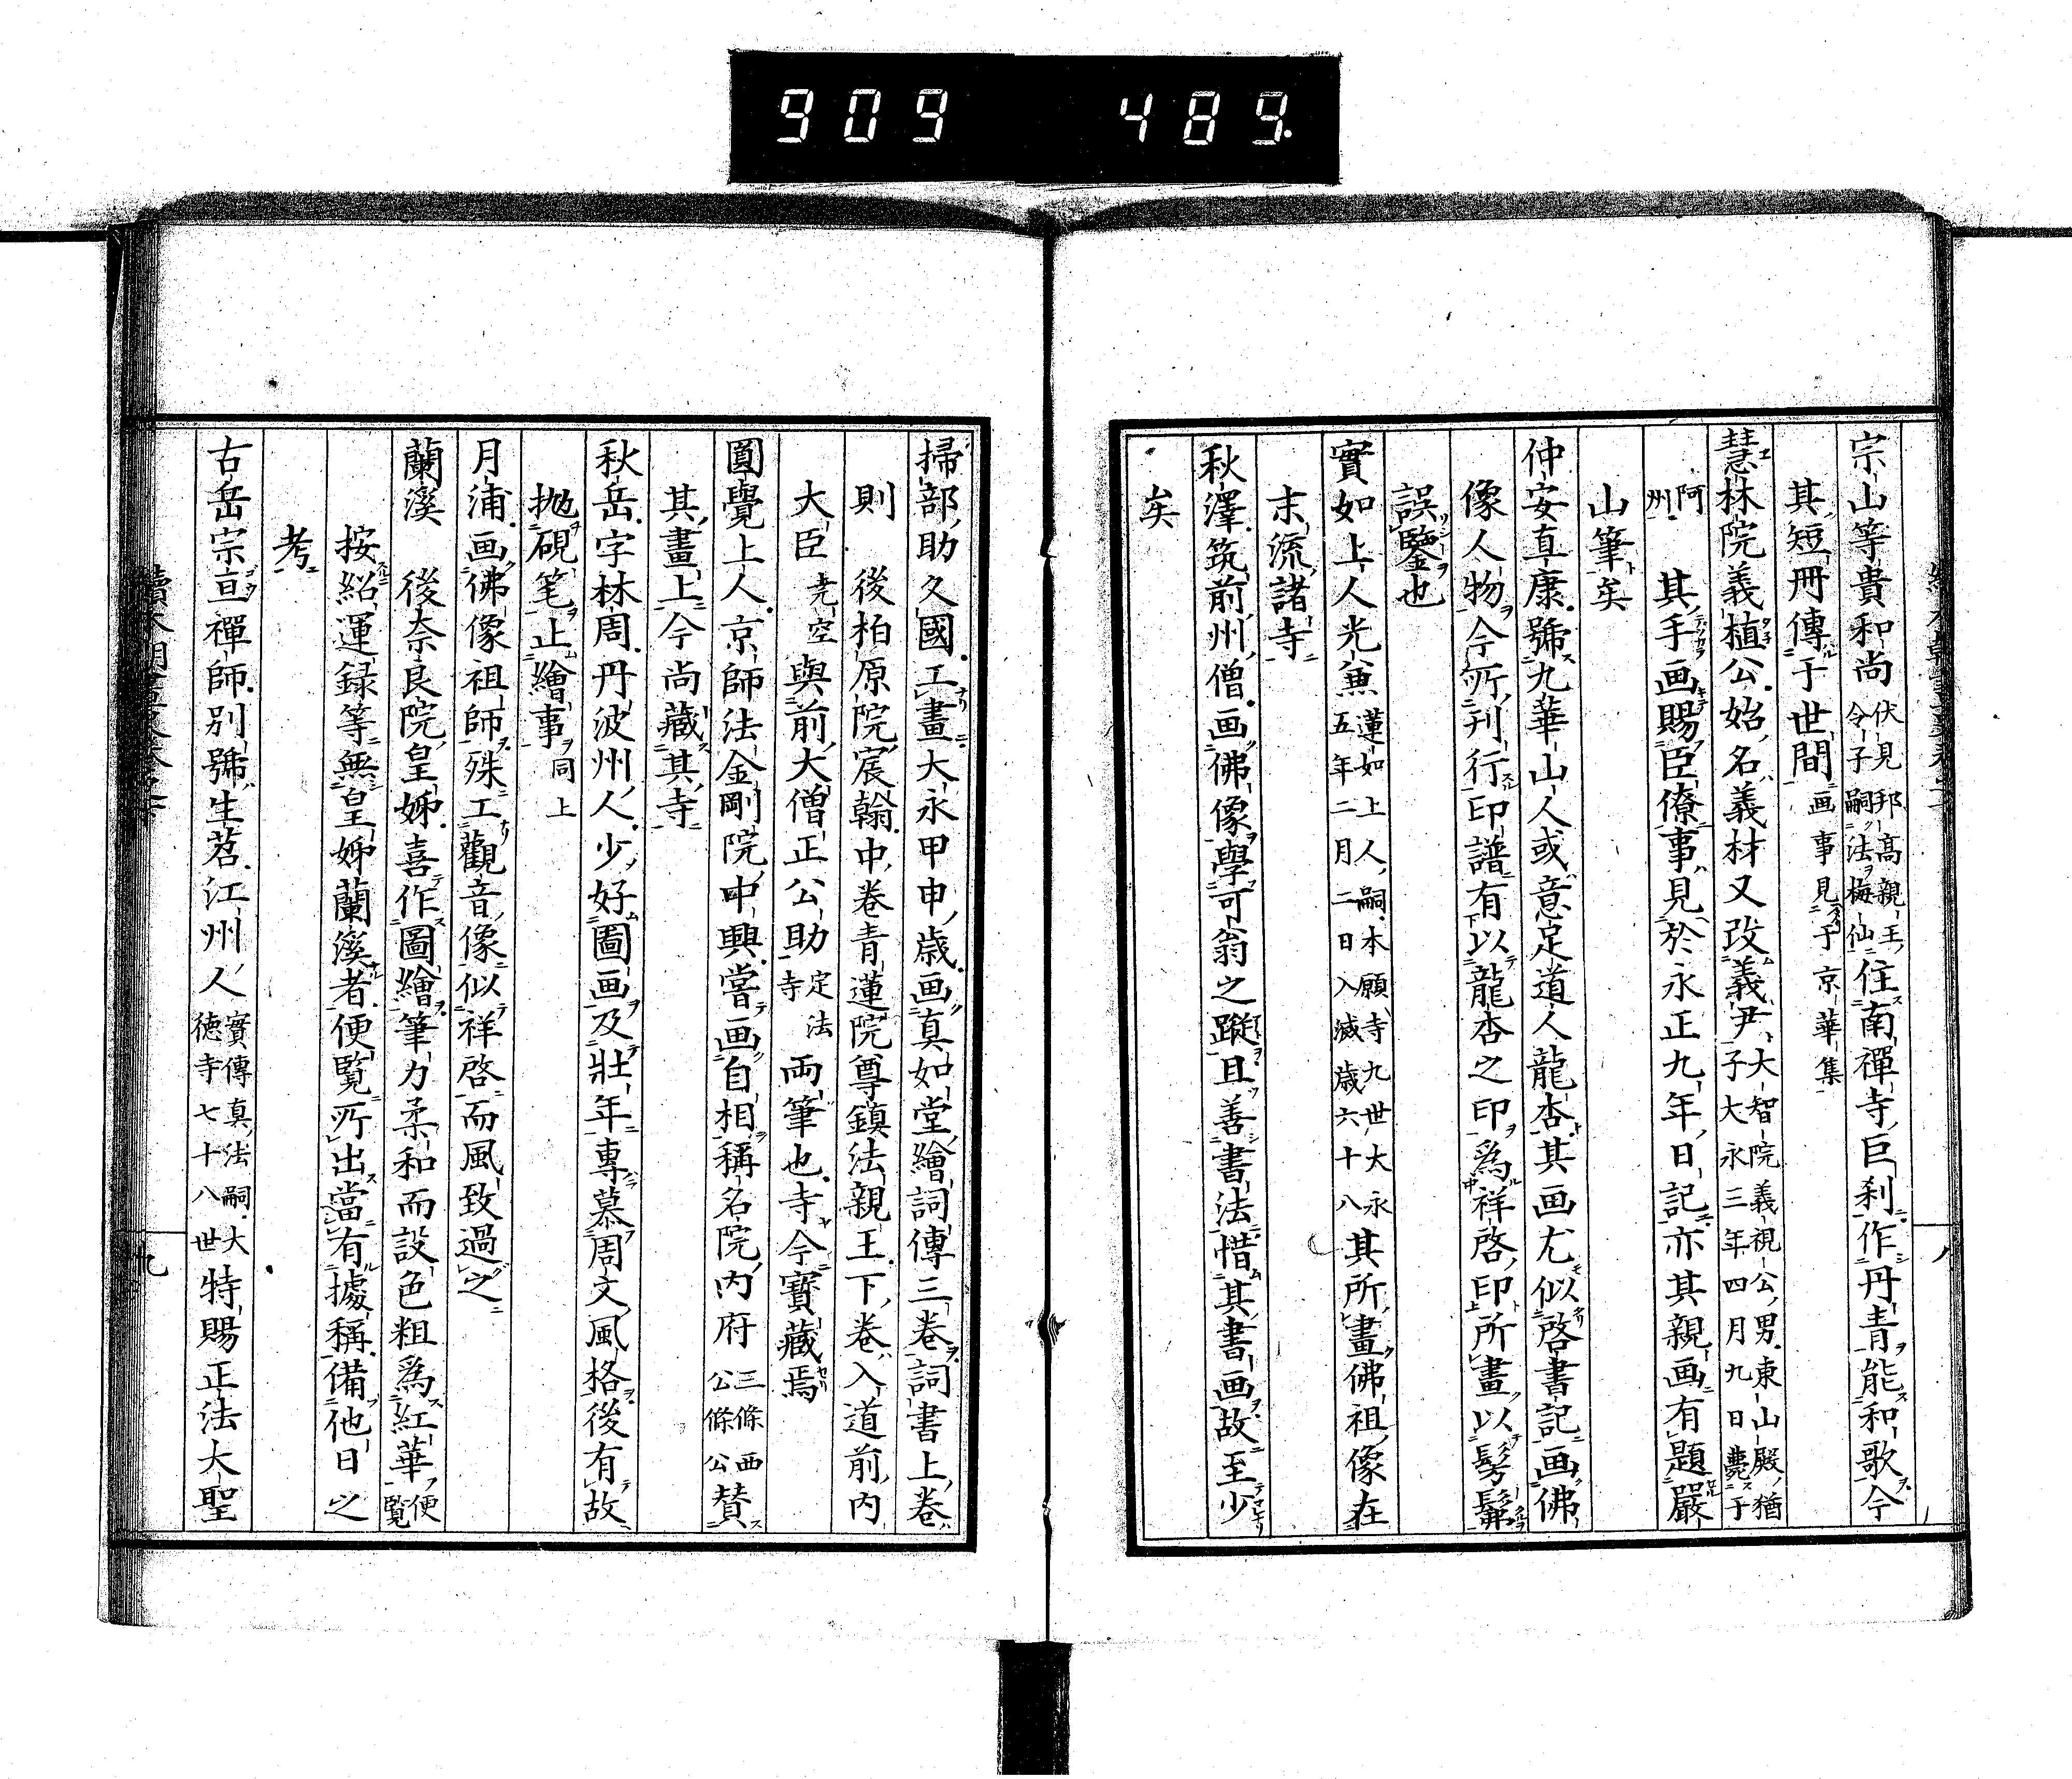 909 489.
宗山等貴和尚伏見邦高親王令子嗣法梅仙住南禪寺巨刹作丹青能和歌今
其短冊傳于世間画事見于京華集
慧林院義植公始名義材又改義尹大智院義視公男東山殿猶子大永三年四月九日薨于
阿州其手画賜臣僚事見於永正九年日記亦其親画有題嚴
山筆矣
仲安真康號九華山人或意足道人龍杏其画尤似啓書記画佛
像人物今所刊行印譜有以龍杏之印爲祥啓印所畫以髣髴
誤鑒也
實如上人光兼蓮如上人嗣本願寺九世大永五年二月二日入滅歳六十八其所畫佛祖像在
末流諸寺
秋澤筑前州僧画佛像學可翁之蹤且善書法惜其書画故至少
矣
八
掃部助久國工畫大永甲申歳画真如堂繪詞傳三卷詞書上卷
則後柏原院宸翰中卷青蓮院尊鎮法親王下卷入道前内
大臣尭空與前大僧正公助定法寺両筆也寺今寶藏焉
圓覺上人京師法金剛院中興嘗画自相稱名院内府三條西公條公賛
其畫上今尚藏其寺
秋岳字林周丹波州人少好圖画及壯年專慕周文風格後有故
抛硯笔止繪事同上
月浦画佛像祖師殊工觀音像似祥啓而風致過之
蘭溪後奈良院皇姊喜作圖繪筆力柔和而設色粗爲紅華便覧
按紹運録等無皇姊蘭溪者便覧所出當有據稱備他日之
考
古岳宗亘禪師別號生苕江州人實傳真法嗣大徳寺七十八世特賜正法大聖
九